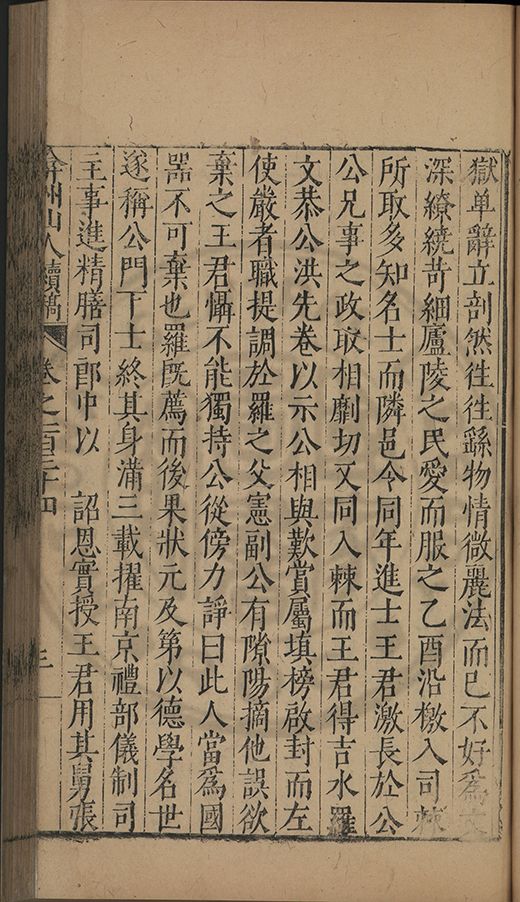 獄单辭立剖然徃徃繇物情微麗法而已不好爲文
深繚繞苛細廬陵之民愛而服之乙酉沿檄入司棘
所取多知名士而隣邑令同年進士王君激長於公
公兄事之政取相劘切又同入棘而王君得吉水羅
文恭公洪先卷以示公相與歎賞屬填榜啟封而左
使嚴者職提調於羅之父憲副公有隙陽摘他誤欲
棄之王君懾不能獨持公從傍力諍曰此人當爲國
噐不可棄也羅旣薦而後果狀元及第以德學名世
遂稱公門下士終其身滿三載擢南京禮部儀制司
主事進精膳司郎中以 詔恩實授王君用其舅張
弇州山人續稿 卷之一百三十四 三